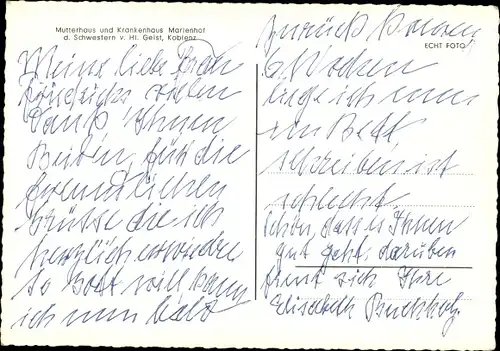 Mutterhaus und Krankenhaus Marienhof
d. Schwestern v. Hl. Geist, Koblenz
ECHT FOTO
Meine liebe Frau
vielen
Dank Ihnen
Beiden, für die
freundlichen
Grüsse die ich
herzlich erwidre
so Gott will kann
ich nun bald
zurück kommen
6 Wochen
liege ich nun
im Bett
schreiben ist
schlecht.
Schön, dass es Ihnen
gut geht. darüber
freut sich Ihre
Elisabeth